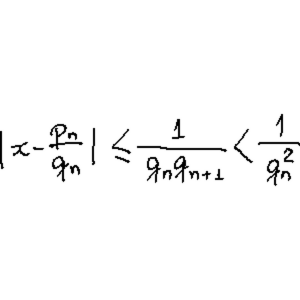 |x - pₙ/qₙ| ≤ 1/(qₙqₙ₊₁) < 1/qₙ²